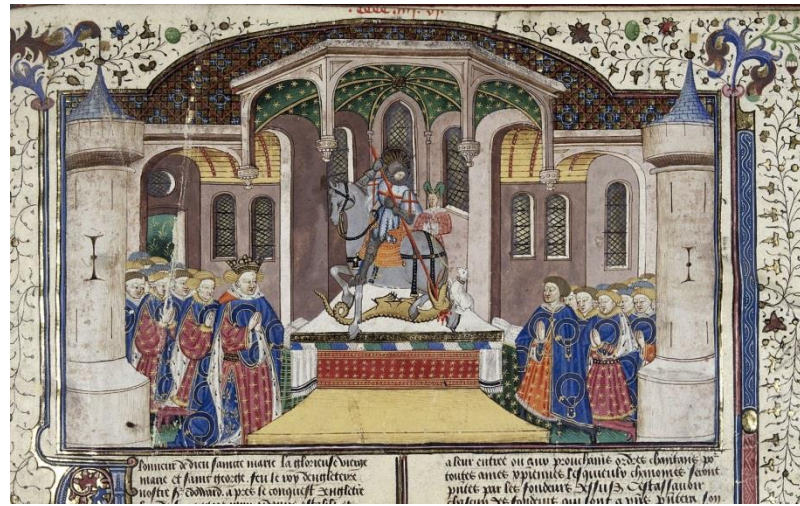 lonneur de dieu saincte marie la glorieuse vierge
marie et saint george. feu le roy dengleterre
nostre sr Edouard. apres le conquest dengletre
a leur entree ou aux prouchains ordres chantans por
toutes ames xpiennes lesquieulx chanones seront
pntes par les fondeurs dessus. Cestassavoir
chascun qui sont a pntera son